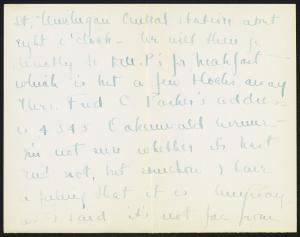 St, Michigan Central Station about
eight o'clock - We will then go
directly to Mr. P's for breakfast
which is but a few blocks away
Mrs. Fred C. Parker's address
is 4345 Oakenwald Avenue -
I'm not sure whether its
not, but somehow I have
a feeling that it is Anyway
as I said it's not far from